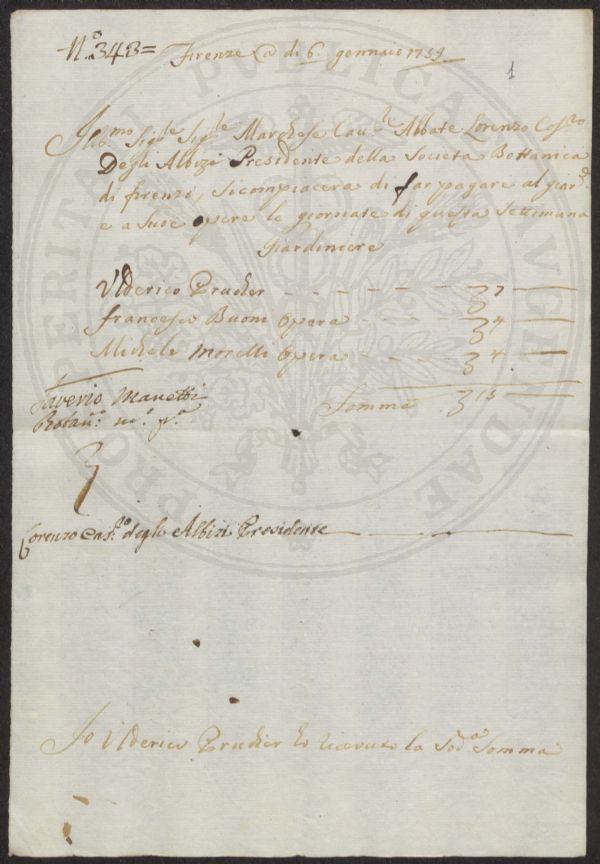 N.o 343 = Firenze @ di 6. gennaio 1759
1
Ill.mo Sig.re Sig.re Marchese Cav.re Abbate Lorenzo Cas.ro
Degli Albizi Presidente della Societa Bottanica
di firenze, si compiacera di far pagare al giard.e
e a sue opere le giornate di questa settimana
Giardiniere
Ulderico Prucker - - - - - - 7 —
francesco Buoni Opera - - - - 4 —
Michele Morelli Opera - - - - 4 —
Somma 15 —
Saverio Manetti
Botan.o m.o p.a
Lorenzo Cas.ro degli Albizi Presidente
Io Ulderico Prucker ho ricevuto la Sod.a Somma
PROSPERITATI PUBLICAE AUGENDAE